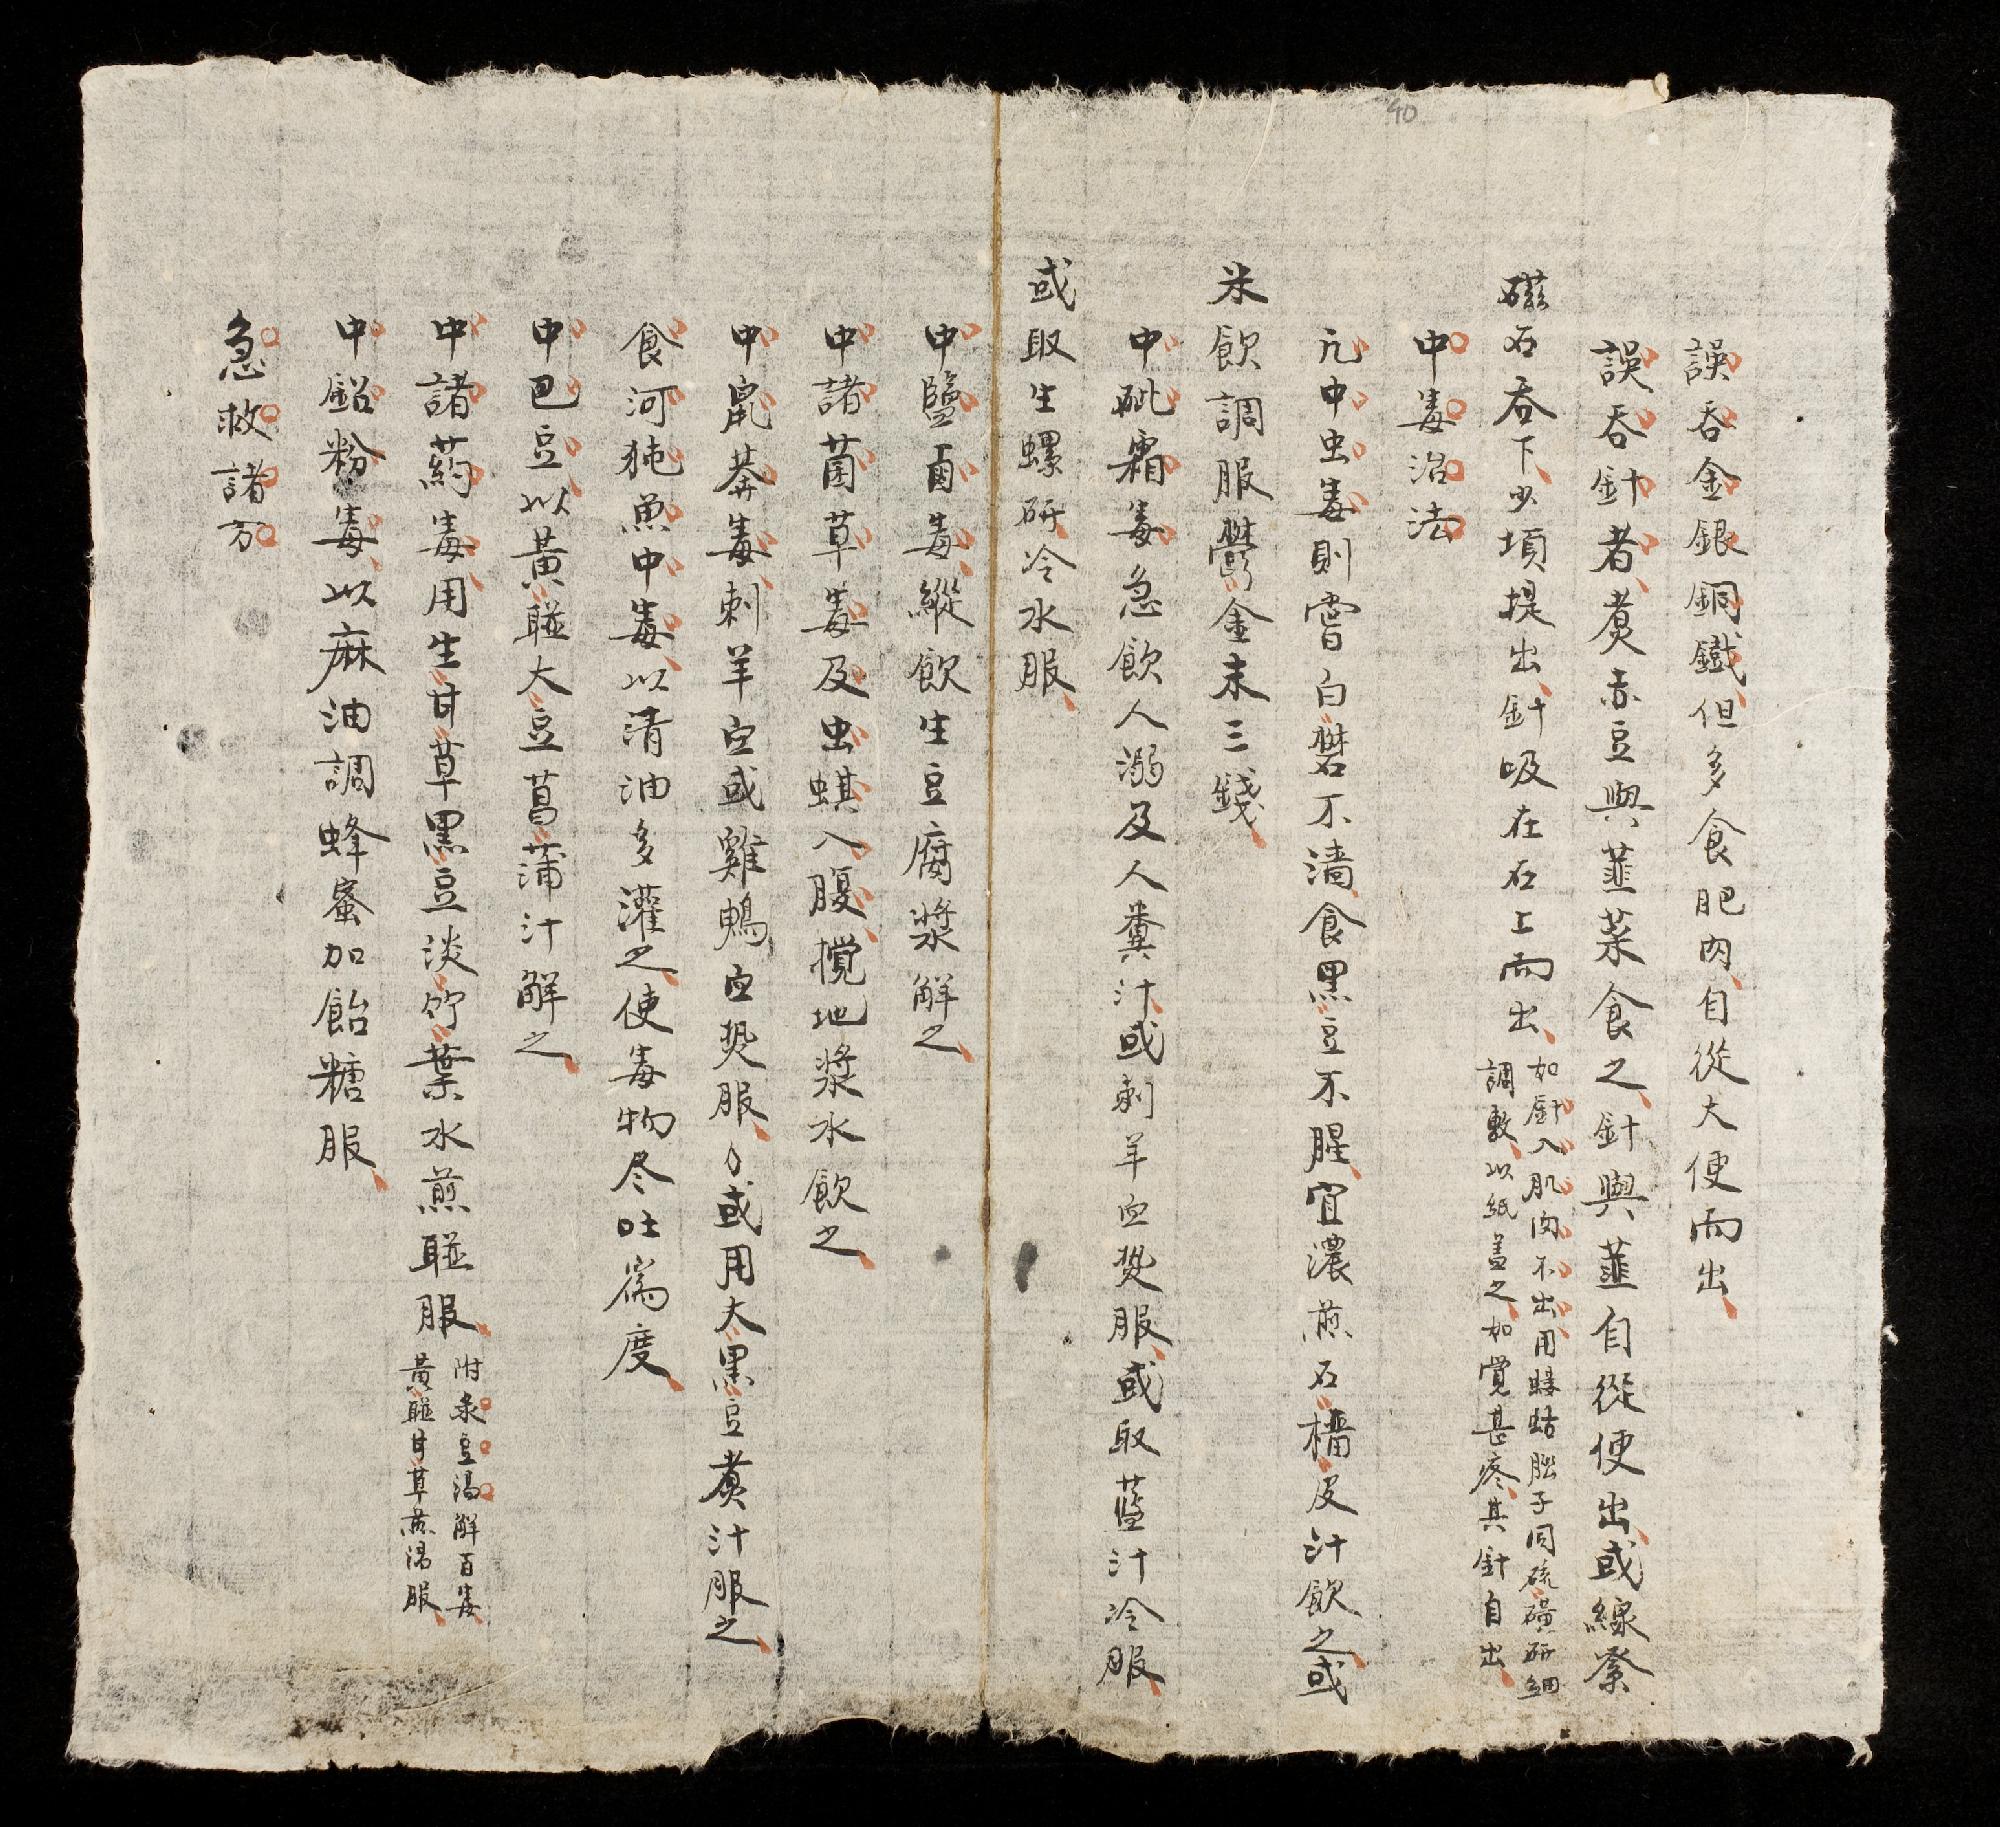 40
誤吞金銀銅鐵但多食肥肉自從大便而出
誤吞針者煮赤豆與韮菜食之針與韮自從便出或線系
磁石吞下少頃提出針吸在石上而出
如針入肌肉不出用螻蛄腦子同硫磺研細
調敷以紙盖之如覺甚疼其針自出
中毒治法
凢中虫毒則嘗白礬不濇食黑豆不腥宜濃煎石榴皮汁飲之或
米飲調服鬱金末三錢
中砒霜毒急飲人溺及人糞汁或刺羊血𤍠服或取藍汁冷服
或取生螺研冷水服
中鹽鹵毒縱飲生豆腐漿解之
中諸菌草毒及虫蜞入腹攪地漿水飲之
中䑕莽毒刺羊血或雞鴨血𤍠服〻或用大黑豆煮汁服之
食河㹠魚中毒以清油多灌之使毒物尽吐為度
中巴豆以黃䃛大豆菖蒲汁解之
中諸葯毒用生甘草黑豆淡竹葉水煎䃛服
附彔豆湯解百毒
黃䃛甘草煎湯服
中鉛粉毒以麻油調蜂蜜加飴糖服
急救諸方